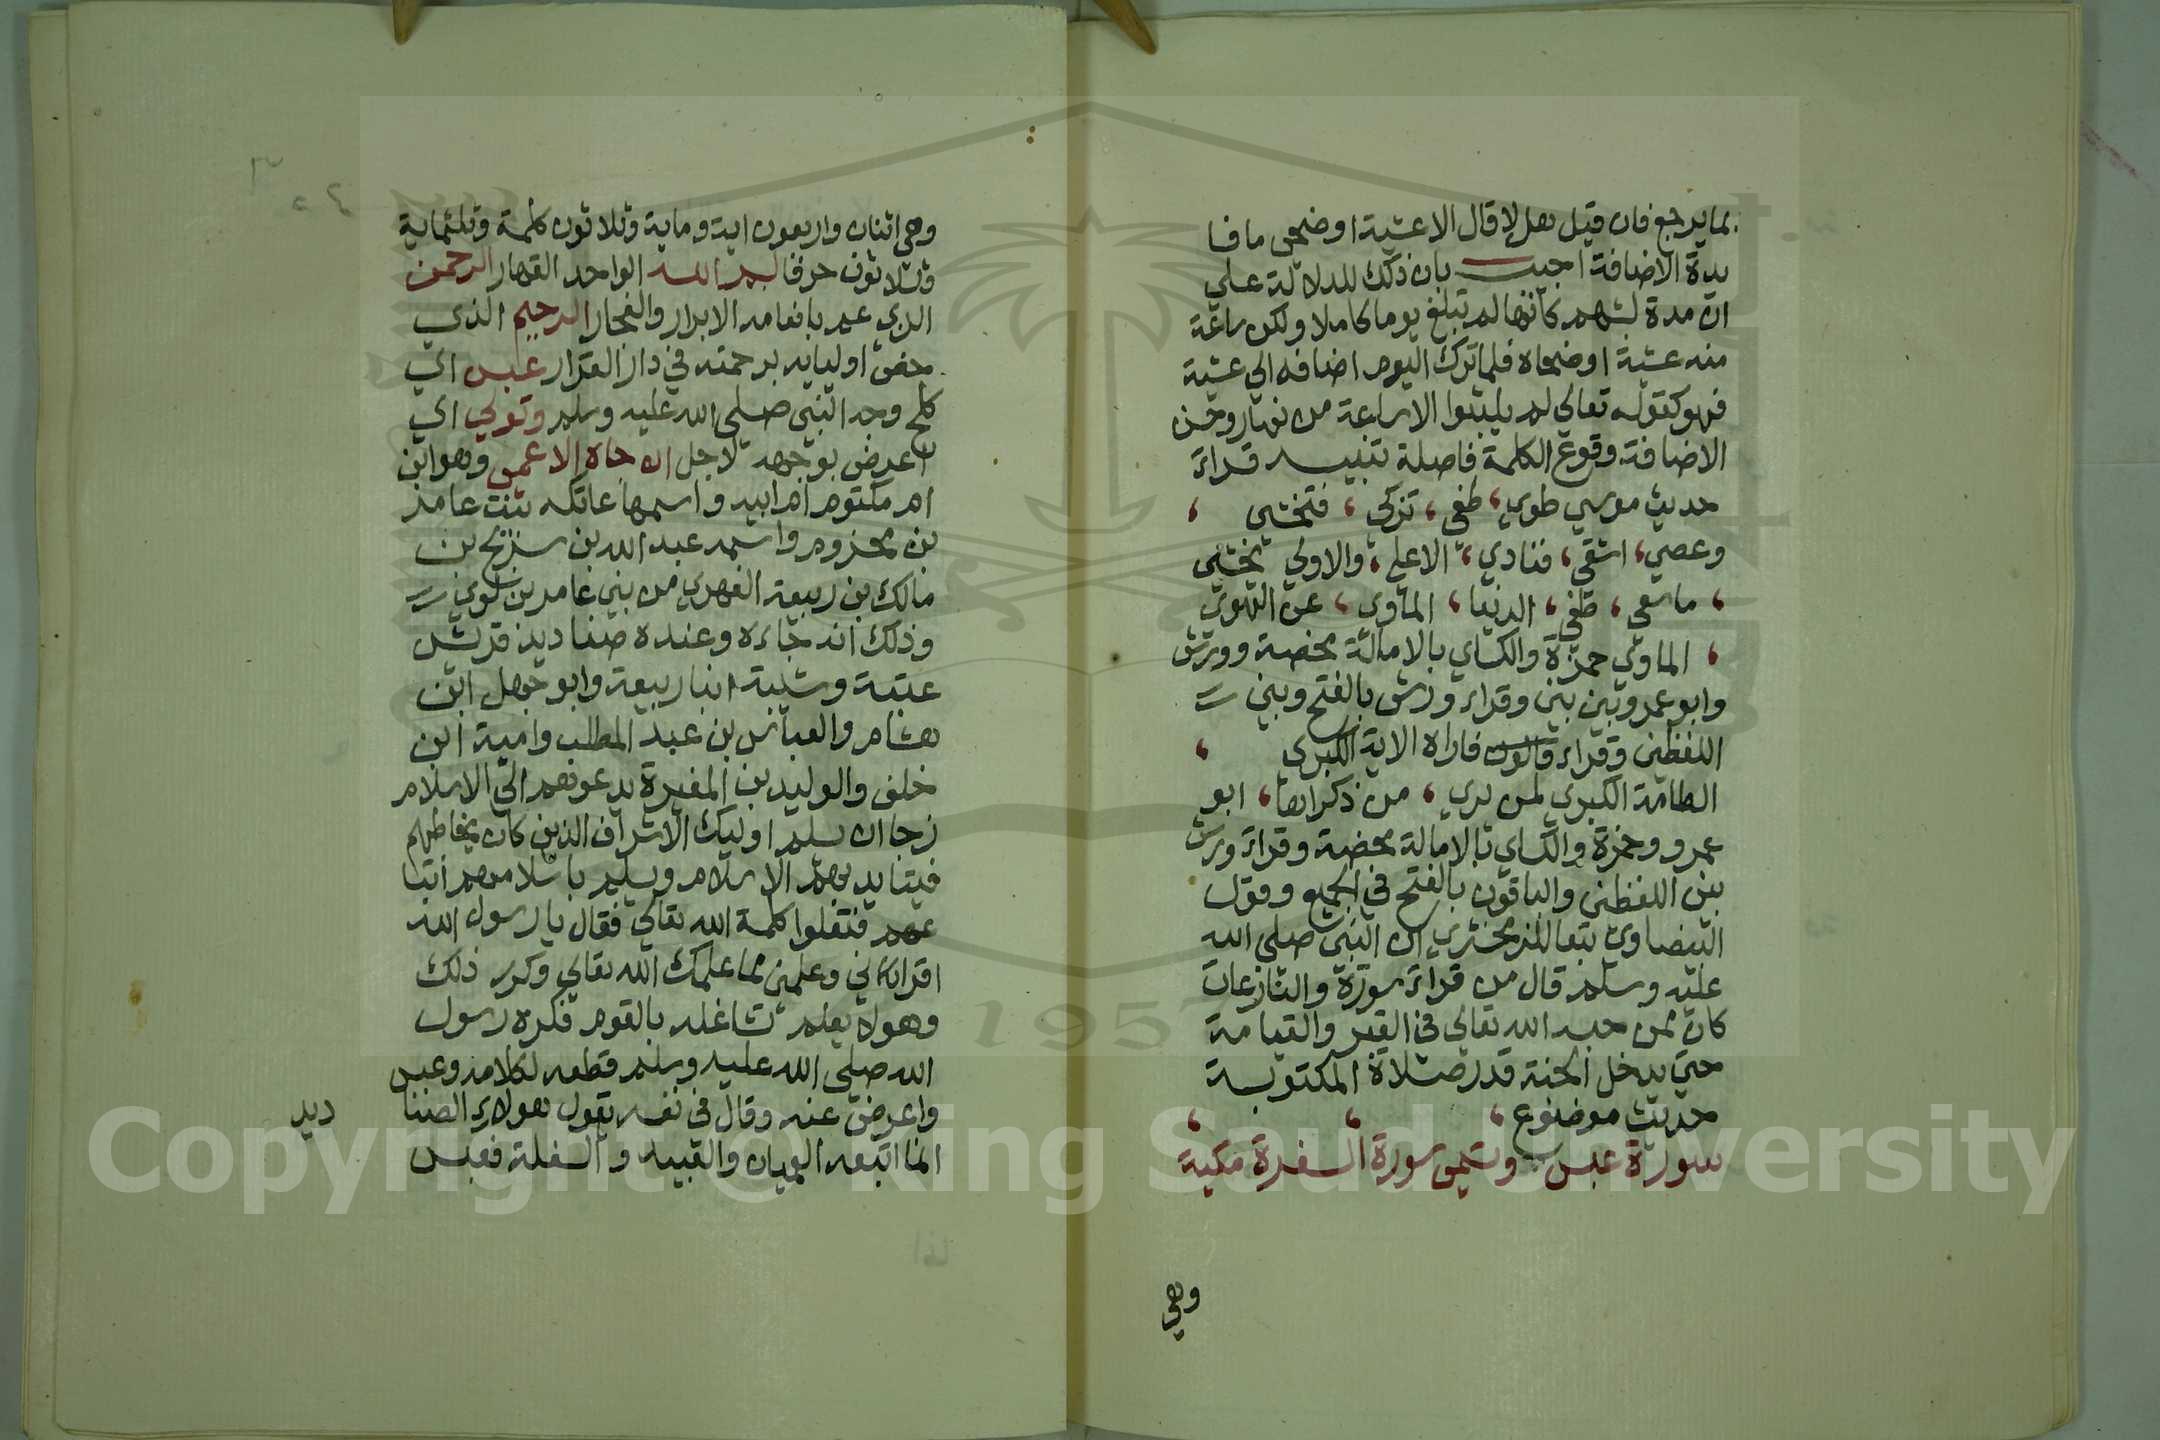 بما يرجع فان قيل هل لا قال الا عشية او ضحى ما فا
يدة الاضافة اجيب بان ذلك للدلالة علي
ان مدة لبثهم كانها لم تبلغ يوما كاملا ولكن ساعة
منه عشية او ضحاه فلما ترك اليوم اضافه الي عشية
فهو كقوله تعالي لم يلبثوا الا ساعة من نهار وحسن
الاضافة وقوع الكلمة فاصلة تنبيه قراة
حديث موسي طوي، طغي، تزكي، فتخشي،
وعصي، اشقي، فنادي، الاعلي، والاولي يخشي
، ماسعي، طغي، الدنيا، الماوي، عن الهوي
، الماوي حمزة والكساي بالامالة محضة وورش
وابو عمرو بين بين وقراء ورش بالفتح وبين
اللفظين وقراء قالون فاراه الاية الكبري،
الطامة الكبري لمن يري، من ذكراها، ابو
عمرو وحمزة والكساي بالامالة محضة وقراة ورش
بين اللفظين والباقون بالفتح في الجميع وقول
البيضاوي تبعا للزمخشري ان النبي صلي الله
عليه وسلم قال من قراة سورة والنازعات
كان ممن حبسه الله تعالي في القبر والقيامة
حتي يدخل الجنة قدر صلاة المكتوبة
حديث موضوع،
سورة عبس وتسمي سورة السفرة مكية،
وهي
وهي اثنان واربعون اية وماية وثلاثون كلمة وثلثماية
وثلاثون حرفا بسم الله الواحد القهار الرحمن
الذي عم بانعامه الابرار والفجار الرحيم الذي
خص اوليايه برحمته في دار القرار عبس اي
كلح وجه النبي صلي الله عليه وسلم وتولي اي
اعرض بوجهه لاجل ان جاه الاعمي وهو ابن
ام مكتوم ام ابيه واسمها عاتكه بنت عامر
بن مخزوم واسمه عبد الله بن شريح بن
مالك بن ربيعة الفهري من بني عامر بن لوي
وذلك انه جاءه وعنده صناديد قريش
عتبة وشيبة ابنا ربيعة وابو جهل ابن
هشام والعباس بن عبد المطلب وامية ابن
خلف والوليد بن المغيرة يدعوهم الي الاسلام
رجا ان يسلم اوليك الاشراف الذين كان يخاطبهم
فيتايد بهم الاسلام ويسلم باسلامهم اتبا
عهم فتعلوا كلمة الله تعالي فقال يا رسول الله
اقراني وعلمني مما علمك الله تعالي وكرر ذلك
وهو لا يعلم تشاغله بالقوم فكره رسول
الله صلي الله عليه وسلم قطعه لكلامه وعبس
واعرض عنه وقال في نفسه يقول هولاء الصنا
ديد
انما اتبعه العميان والعبيد والسفلة فعبس